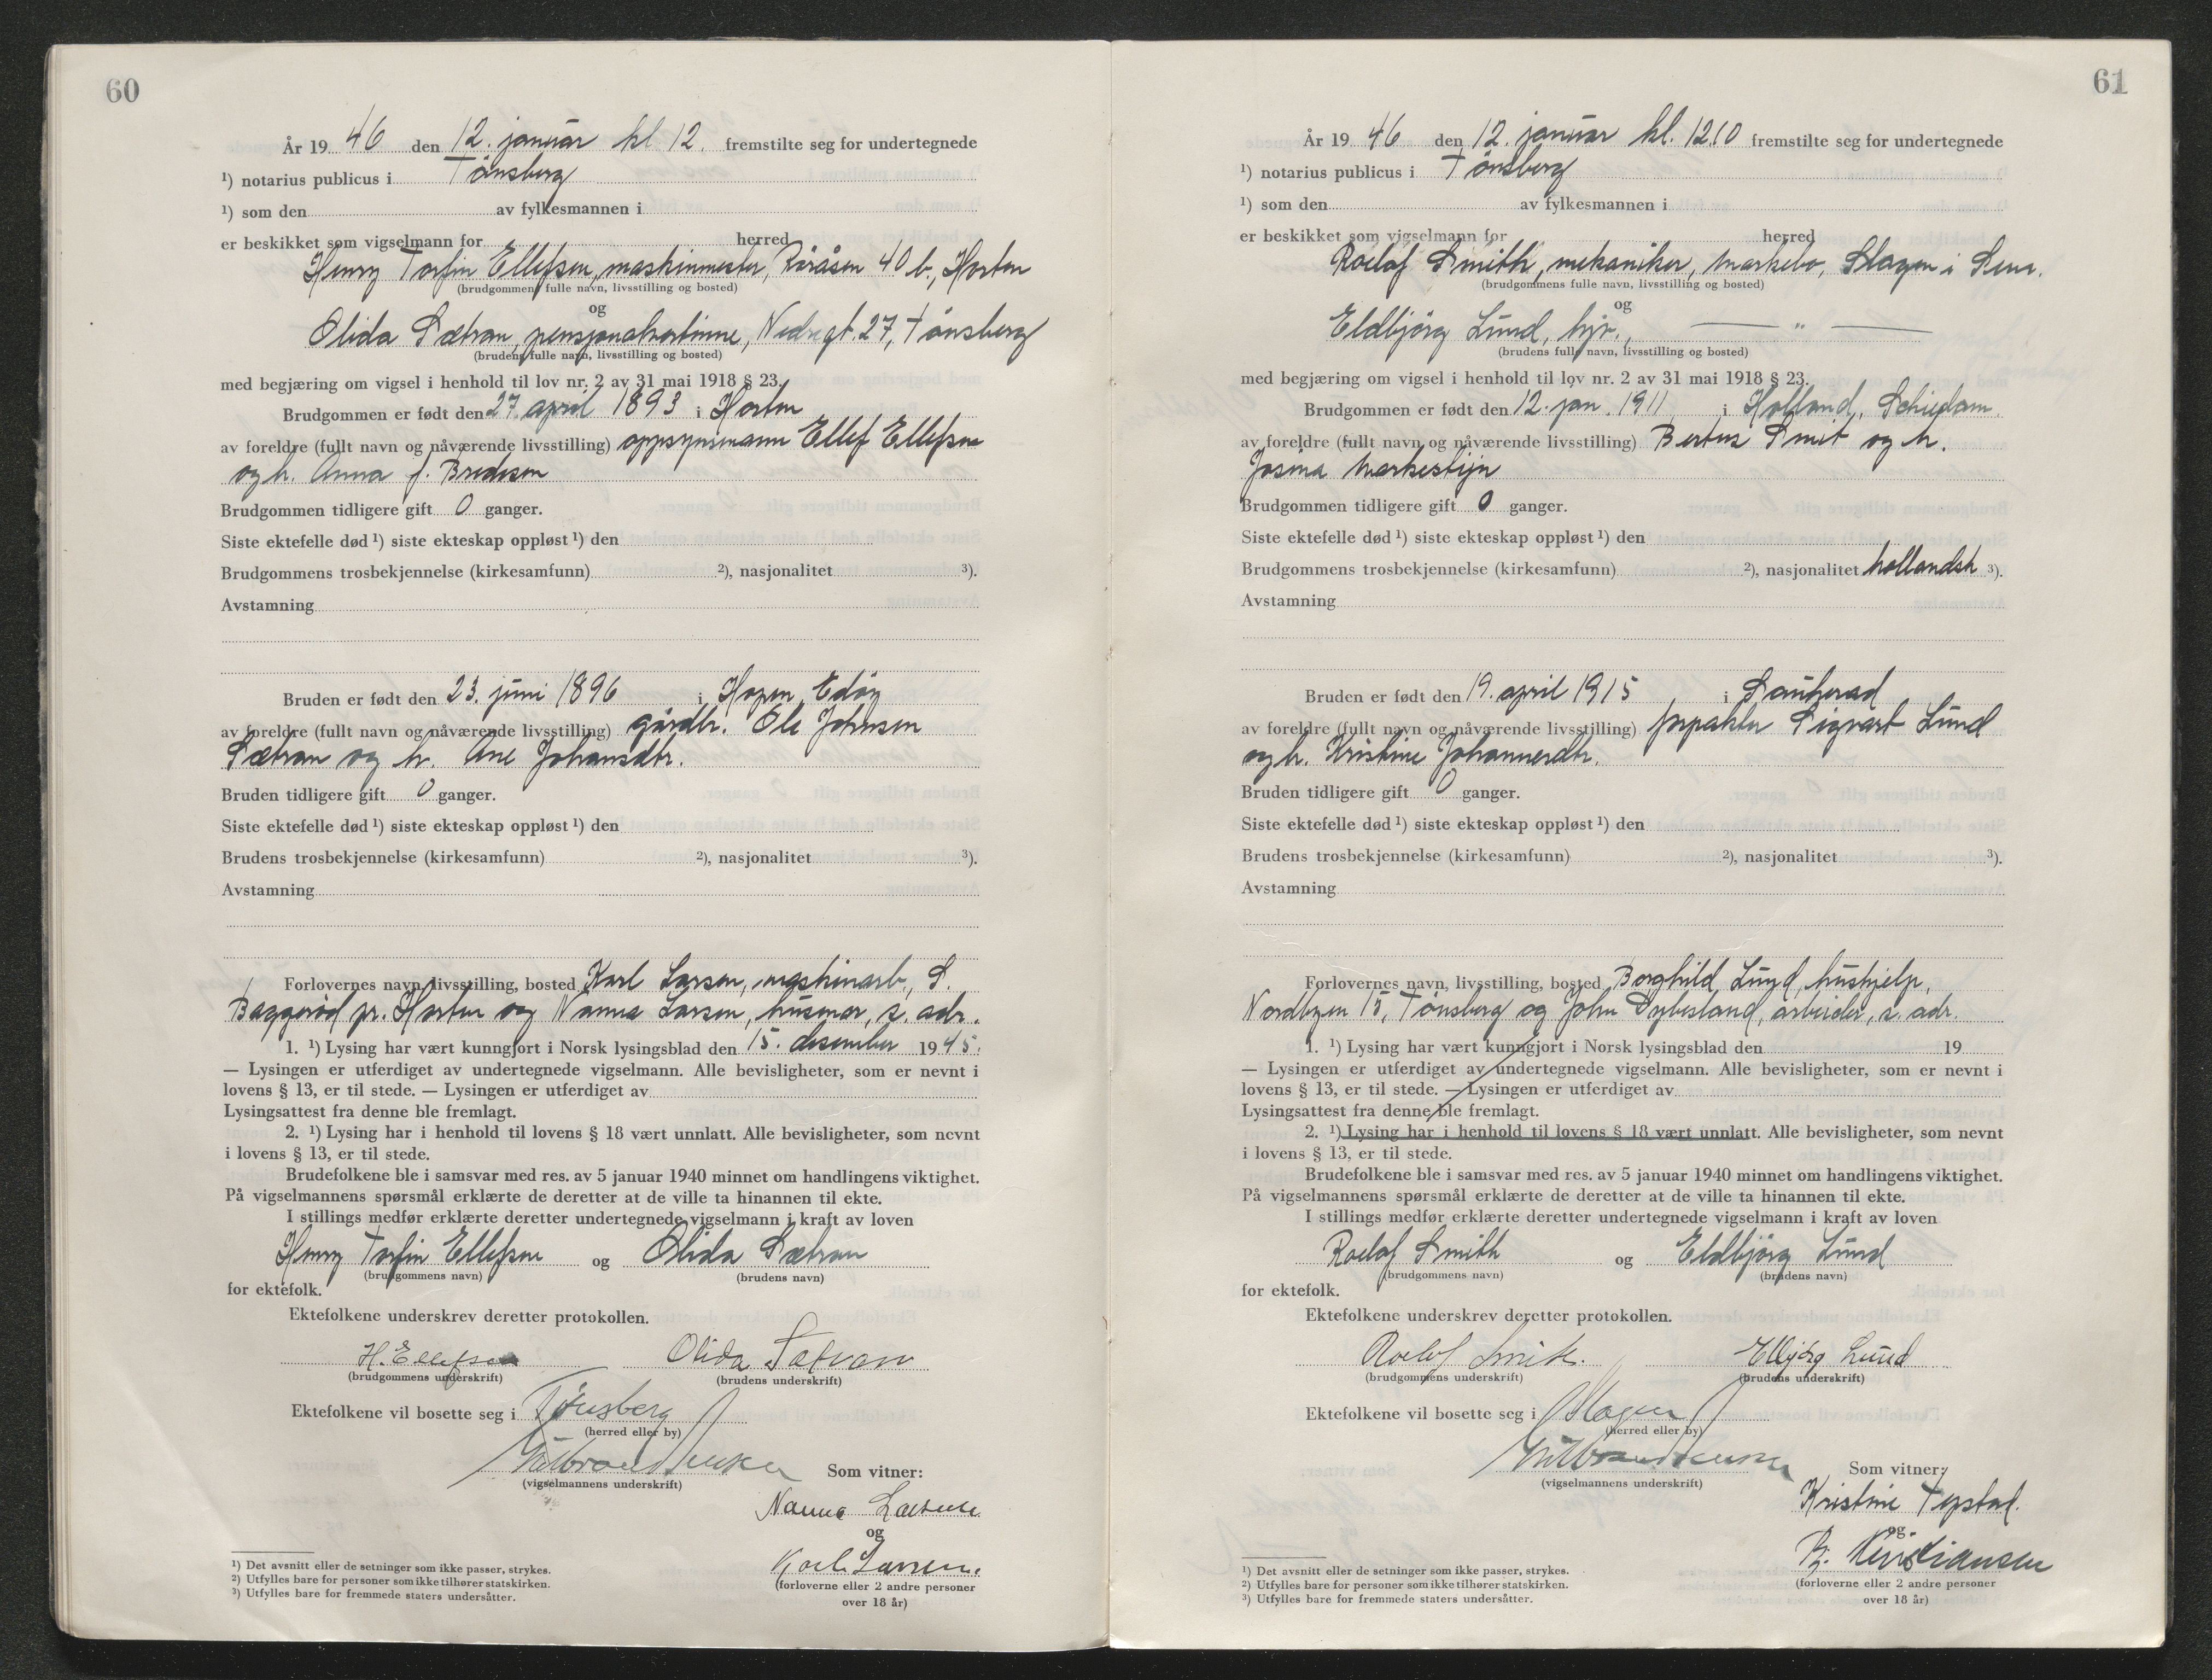 60
År 19 46 den 12. januar kl 12. fremstilte seg for undertegnede
¹) notarius publicus i Tönsberg
¹) som den av fylkesmannen i
er beskikket som vigselmann for herred
Henry Torfin Ellefsen, maskinmester, Röråsen 40 b, Horten
(brudgommens fulle navn, livsstilling og bosted)
og
Olida Sætran, pensjonatvertinne, Nedregt. 27, Tönsberg
(brudens fulle navn, livsstilling og bosted)
med begjæring om vigsel i henhold til lov nr. 2 av 31 mai 1918 § 23.
Brudgommen er født den 27. april 1893 i Horten
av foreldre (fullt navn og nåværende livsstilling) oppsynsmann Ellef Ellefsen
og h. Anna f. Bredesen
Brudgommen tidligere gift 0 ganger.
Siste ektefelle død ¹) siste ekteskap oppløst ¹) den
Brudgommens trosbekjennelse (kirkesamfunn) ²), nasjonalitet ³).
Avstamning
Bruden er født den 23. juni 1896 i Hopen, Edöy
av foreldre (fullt navn og nåværende livsstilling) gårdbr. Ole Johnsen
Sætran og h. Ane Johansdtr.
Bruden tidligere gift 0 ganger.
Siste ektefelle død ¹) siste ekteskap oppløst ¹) den
Brudens trosbekjennelse (kirkesamfunn) ²), nasjonalitet ³).
Avstamning
Forlovernes navn, livsstilling, bosted Karl Larsen, maskinarb., S.
Baggeröd pr. Horten og Nanna Larsen, husmor, s. adr.
1. ¹) Lysing har vært kunngjort i Norsk lysingsblad den 15. desember 1945.
— Lysingen er utferdiget av undertegnede vigselmann. Alle bevisligheter, som er nevnt i
lovens § 13, er til stede. — Lysingen er utferdiget av
Lysingsattest fra denne ble fremlagt.
2. ¹) Lysing har i henhold til lovens § 18 vært unnlatt. Alle bevisligheter, som nevnt
i lovens § 13, er til stede.
Brudefolkene ble i samsvar med res. av 5 januar 1940 minnet om handlingens viktighet.
På vigselmannens spørsmål erklærte de deretter at de ville ta hinannen til ekte.
I stillings medfør erklærte deretter undertegnede vigselmann i kraft av loven
Henry Torfin Ellefsen og Olida Sætran
(brudgommens navn) (brudens navn)
for ektefolk.
Ektefolkene underskrev deretter protokollen.
H. Ellefsen Olida Sætran
(brudgommens underskrift) (brudens underskrift)
Ektefolkene vil bosette seg i Tönsberg
(herred eller by)
Som vitner:
(vigselmannens underskrift)
Nanna Larsen
og
Karl Larsen.
(forloverne eller 2 andre personer
over 18 år)
¹) Det avsnitt eller de setninger som ikke passer, strykes.
²) Utfylles bare for personer som ikke tilhører statskirken.
³) Utfylles bare for fremmede staters undersåtter.
61
År 19 46 den 12. januar kl. 12.10 fremstilte seg for undertegnede
¹) notarius publicus i Tönsberg
¹) som den av fylkesmannen i
er beskikket som vigselmann for herred
Roelof Smith, mekaniker, Markebo, Slagen i Sem.
(brudgommens fulle navn, livsstilling og bosted)
og
Eldbjörg Lund, hjv., — " —
(brudens fulle navn, livsstilling og bosted)
med begjæring om vigsel i henhold til lov nr. 2 av 31 mai 1918 § 23.
Brudgommen er født den 12. jan. 1911 i Holland, Schiedam.
av foreldre (fullt navn og nåværende livsstilling) Bertus Smit og h.
Josina Markestijn
Brudgommen tidligere gift 0 ganger.
Siste ektefelle død ¹) siste ekteskap oppløst ¹) den
Brudgommens trosbekjennelse (kirkesamfunn) ²), nasjonalitet hollandsk ³).
Avstamning
Bruden er født den 19. april 1915 i Sauherad
av foreldre (fullt navn og nåværende livsstilling) forpakter Sigvart Lund
og h. Kristine Johannesdtr.
Bruden tidligere gift 0 ganger.
Siste ektefelle død ¹) siste ekteskap oppløst ¹) den
Brudens trosbekjennelse (kirkesamfunn) ²), nasjonalitet ³).
Avstamning
Forlovernes navn, livsstilling, bosted Borghild Lund, hushjelp,
Nordbyen 15, Tönsberg og John Dybesland, arbeider, s. adr.
1. ¹) Lysing har vært kunngjort i Norsk lysingsblad den 19
— Lysingen er utferdiget av undertegnede vigselmann. Alle bevisligheter, som er nevnt i
lovens § 13, er til stede. — Lysingen er utferdiget av
Lysingsattest fra denne ble fremlagt.
2. ¹) Lysing har i henhold til lovens § 18 vært unnlatt. Alle bevisligheter, som nevnt
i lovens § 13, er til stede.
Brudefolkene ble i samsvar med res. av 5 januar 1940 minnet om handlingens viktighet.
På vigselmannens spørsmål erklærte de deretter at de ville ta hinannen til ekte.
I stillings medfør erklærte deretter undertegnede vigselmann i kraft av loven
Roelof Smith og Eldbjörg Lund
(brudgommens navn) (brudens navn)
for ektefolk.
Ektefolkene underskrev deretter protokollen.
Roelof Smith. Elbjörg Lund
(brudgommens underskrift) (brudens underskrift)
Ektefolkene vil bosette seg i Slagen
(herred eller by)
Som vitner:
(vigselmannens underskrift)
Kristine
og
R. Kristiansen
(forloverne eller 2 andre personer
over 18 år)
¹) Det avsnitt eller de setninger som ikke passer, strykes.
²) Utfylles bare for personer som ikke tilhører statskirken.
³) Utfylles bare for fremmede staters undersåtter.